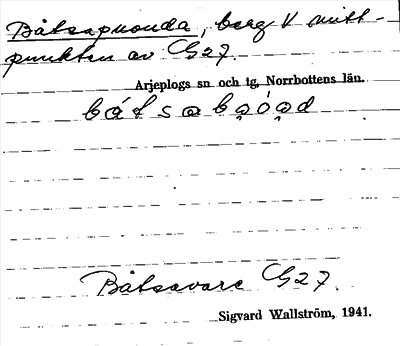 Båtsapuonda, berg V mitt-
punkten av G27.
Arjeplogs sn och tg, Norrbottens län.
Båtsavare G27.
Sigvard Wallström, 1941.